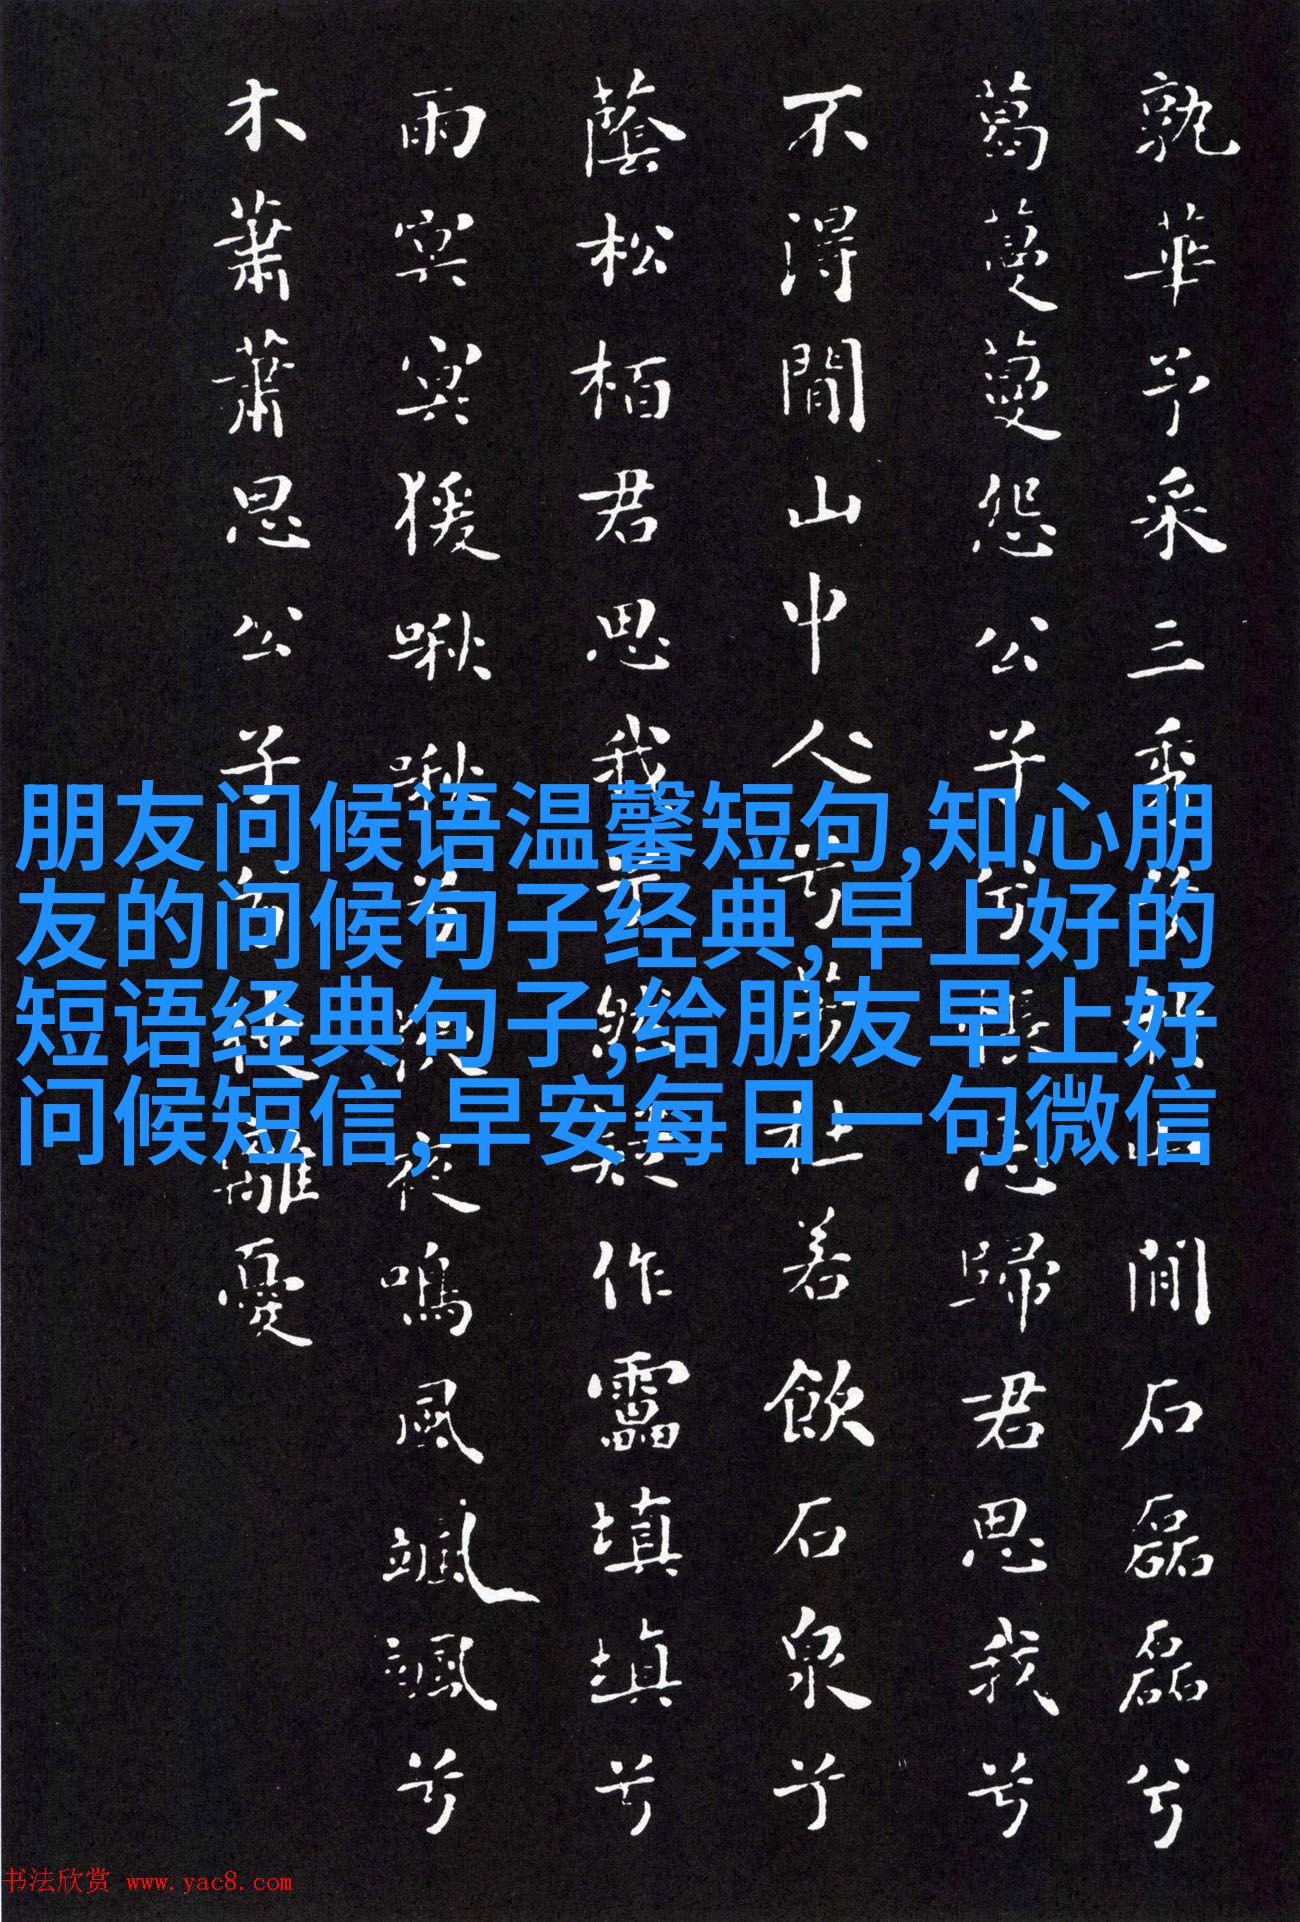 孰華予采三秀兮於山間石磊磊兮
葛蔓蔓怨公子兮悵忘歸君思我兮
不得間山中人兮芳杜若飲石泉兮
蔭松栢君思我兮然疑作靁填填兮
雨冥冥猨啾啾兮狖夜鳴風颯颯兮
木蕭蕭思公子兮徒離憂
朋友问候语温馨短句,知心朋
友的问候句子经典,早上好的
短语经典句子,给朋友早上好
问候短信,早安每日一句微信
书法欣赏 www.yac8.com